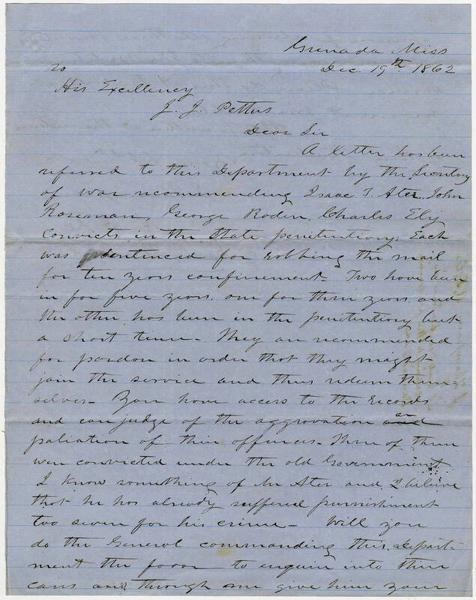 Grenada Miss
Dec 19th 1862
To
His Excellency
J. J. Pettus
Dear Sir
A letter has been
referred to this Department by the Secretary
of war recommending Isaac T. Ater, John
Roseman, George Roden, Charles Ely
convicts in the State penitentiary. Each
was sentenced for robbing the mail
for ten years confinement. Two have been
in for five years, one for three years and
the other has been in the penitentiary but
a short time. They are recommended
for pardon in order that they might
join the service and thus redeem them
selves. You have access to the Records
and can judge of the aggrovation and or
paliation of their offences. Three of them
were convicted under the old Government.
I know something of Mr Ater and I believe
that he has already suffered punishment
too severe for his crime. Will you
do the General commanding this Depart-
ment the favor to enquire into their
cases and through me give him your